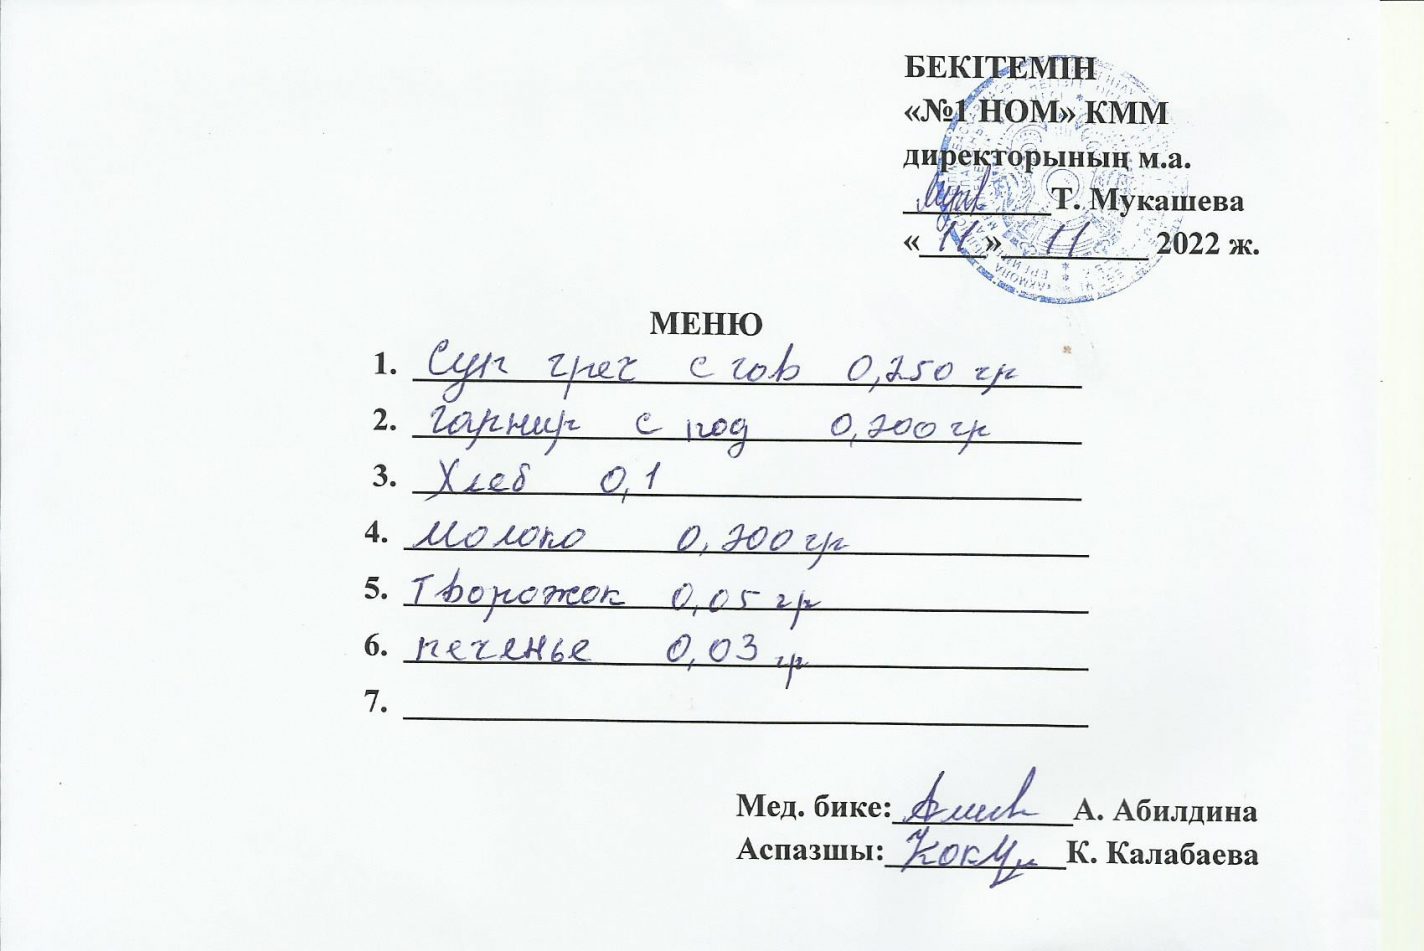 БЕКІТЕМІН
«№1 НОМ» КММ
директорының м.а.
Т. Мукашева
«11» 11 2022 ж.
МЕНЮ
1. Суп греч с гов 0,250 гр
2. гарнир с под 0,200 гр
3. Хлеб 0,1
4. Молоко 0,200 гр
5. Творожок 0,05 гр
6. печенье 0,03 гр
7.
Мед. бике: А. Абилдина
Аспазшы: К. Калабаева